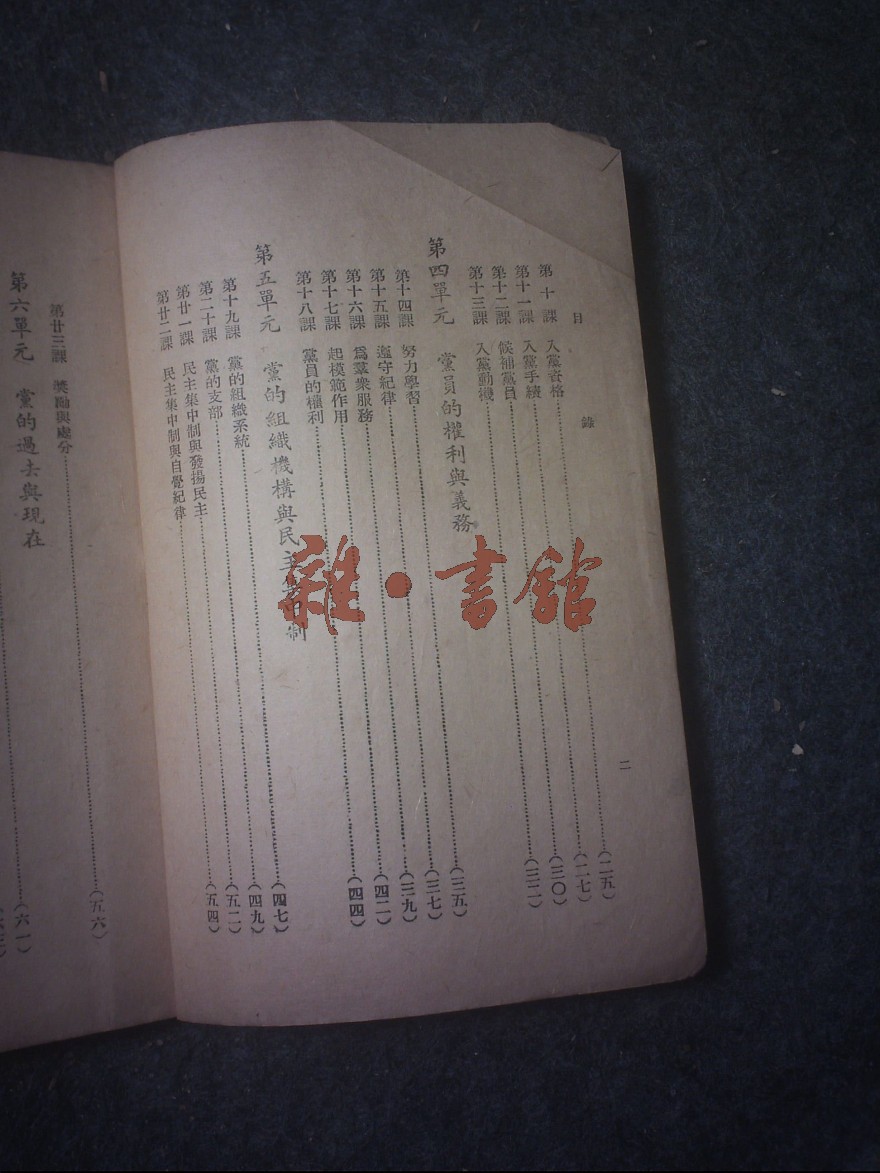 目錄
二
第十課 入黨資格……(二五)
第十一課 入黨手續……(二七)
第十二課 候補黨員……(三〇)
第十三課 入黨動機……(三二)
第四單元 黨員的權利與義務
第十四課 努力學習……(三五)
第十五課 遵守紀律……(三七)
第十六課 為羣衆服務……(三九)
第十七課 起模範作用……(四二)
第十八課 黨員的權利……(四四)
第五單元 黨的組織機構與民主集中制
第十九課 黨的組織系統……(四七)
第二十課 黨的支部……(四九)
第廿一課 民主集中制與發揚民主……(五二)
第廿二課 民主集中制與自覺紀律……(五四)
第廿三課 獎勵與處分……(五六)
第六單元 黨的過去與現在
(六一)
雜·書館